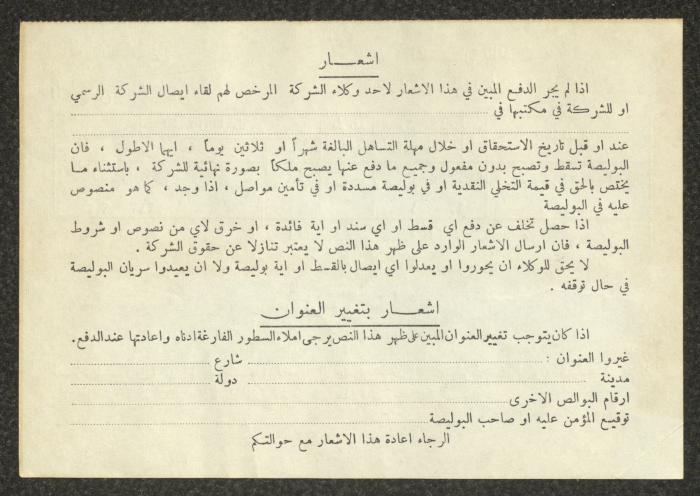 اشعـــار
اذا لم يجر الدفع المبين في هذا الاشعار لاحد وكلاء الشركة المرخص لهم لقاء ايصال الشركة الرسمي
او للشركة في مكتبها في
عند او قبل تاريخ الاستحقاق او خلال مهلة التساهل البالغة شهراً او ثلاثين يوماً ، ايهما الاطول ، فان
البوليصة تسقط وتصبح بدون مفعول وجميع ما دفع عنها يصبح ملكاً بصورة نهائية للشركة ، باستثناء ما
يختص بالحق في قيمة التخلي النقدية او في بوليصة مسددة او في تأمين مواصل ، اذا وجد ، كما هو منصوص
عليه في البوليصة
اذا حصل تخلف عن دفع اي قسط او اي سند او اية فائدة ، او خرق لاي من نصوص او شروط
البوليصة ، فان ارسال الاشعار الوارد على ظهر هذا النص لا يعتبر تنازلا عن حقوق الشركة .
لا يحق للوكلاء ان يحوروا او يعدلوا اي ايصال بالقسط او اية بوليصة ولا ان يعيدوا سريان البوليصة
في حال توقفه .
اشعـــار بتغيير العنوان
اذا كان يتوجب تغيير العنوان المبين على ظهر هذا النص يرجى املاء السطور الفارغة ادناه واعادتها عند الدفع.
غيروا العنوان : شارع
مدينة دولة
ارقام البوالص الاخرى
توقيع المؤمن عليه او صاحب البوليصة
الرجاء اعادة هذا الاشعار مع حوالتكم